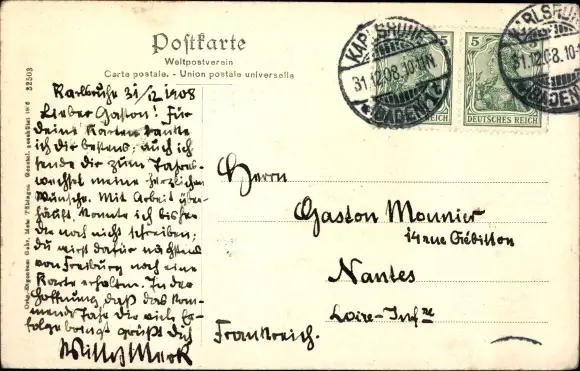 Postkarte
Weltpostverein
Carte postale. - Union postale universelle
32503
KARLSRUHE
31.12.08.10-11N
* (BADEN) 1
5
5
DEUTSCHES REICH
KARLSRUHE
31.12.08.10-
(BADEN)
Karlsruhe 31/12 1908
Lieber Gaston! Für
deine Karten danke
ich dir bestens; auch ich
sende dir zum Jahres-
wechsel meine herzlichen
Wünsche. Mit Arbeit über-
häuft, konnte ich bisher
dir noch nicht schreiben;
du wirst dafür nächstens
von Freiburg noch eine
Karte erhalten. In der
Hoffnung daß das kom-
mende Jahr dir viele Er-
folge bringt grüßt dich
Merk
Herrn
Gaston Mounier
14 rue Crébillon
Nantes
Loire-Infre
Frankreich.